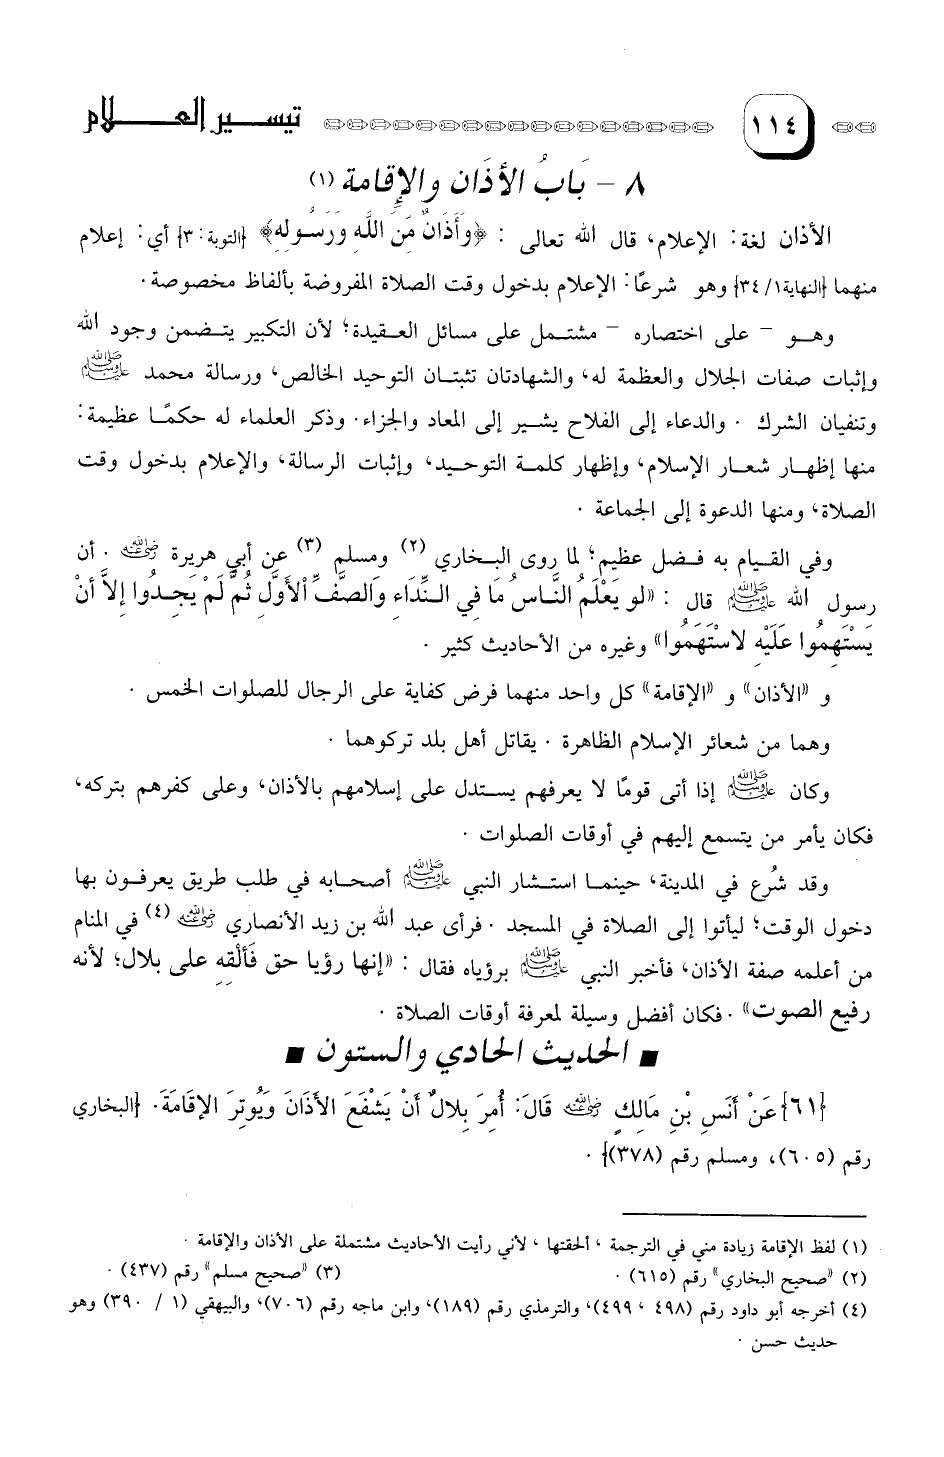 ١١٤ تيسير العلام
٨ - بَابُ الأذَان والإِقامة (١)
الأذان لغة: الإعلام، قال الله تعالى : ﴿وَأَذَانٌ مِّنَ اللَّهِ وَرَسُولِهِ﴾ {التوبة: ٣} أي: إعلام
منهما {النهاية ١/ ٣٤} وهو شرعًا: الإعلام بدخول وقت الصلاة المفروضة بألفاظ مخصوصة.
وهو - على اختصاره - مشتمل على مسائل العقيدة؛ لأن التكبير يتضمن وجود الله
وإثبات صفات الجلال والعظمة له، والشهادتان تثبتان التوحيد الخالص، ورسالة محمد ﷺ
وتنفيان الشرك . والدعاء إلى الفلاح يشير إلى المعاد والجزاء. وذكر العلماء له حكمًا عظيمة:
منها إظهار شعار الإسلام، وإظهار كلمة التوحيد، وإثبات الرسالة، والإعلام بدخول وقت
الصلاة، ومنها الدعوة إلى الجماعة .
وفي القيام به فضل عظيم؛ لما روى البخاري (٢) ومسلم (٣) عن أبي هريرة رضي الله عنه . أن
رسول الله ﷺ قال : «لو يَعْلَمُ النَّاسُ مَا في النِّدَاءِ وَالصَّفِّ الْأَوَّلِ ثُمَّ لَمْ يَجِدُوا إلاَّ أنْ
يَسْتَهِمُوا عَلَيْهِ لاسْتَهَمُوا» وغيره من الأحاديث كثير .
و «الأذان» و «الإقامة» كل واحد منهما فرض كفاية على الرجال للصلوات الخمس .
وهما من شعائر الإسلام الظاهرة . يقاتل أهل بلد تركوهما .
وكان ﷺ إذا أتى قومًا لا يعرفهم يستدل على إسلامهم بالأذان، وعلى كفرهم بتركه،
فكان يأمر من يتسمع إليهم في أوقات الصلوات .
وقد شُرع في المدينة، حينما استشار النبي ﷺ أصحابه في طلب طريق يعرفون بها
دخول الوقت؛ ليأتوا إلى الصلاة في المسجد . فرأى عبد الله بن زيد الأنصاري رضي الله عنه (٤) في المنام
من أعلمه صفة الأذان، فأخبر النبي ﷺ برؤياه فقال : «إنها رؤيا حق فَألْقِهِ على بلال؛ لأنه
رفيع الصوت» . فكان أفضل وسيلة لمعرفة أوقات الصلاة .
■ الحديث الحادي والستون ■
{٦١} عَنْ أنَسِ بْنِ مَالِكٍ رضي الله عنه قَالَ: أُمِرَ بِلالٌ أنْ يَشْفَعَ الأذَانَ وَيُوتِرَ الإقَامَةَ. {البخاري
رقم (٦٠٥)، ومسلم رقم (٣٧٨)} .
(١) لفظ الإقامة زيادة مني في الترجمة ، ألحقتها ، لأني رأيت الأحاديث مشتملة على الأذان والإقامة .
(٢) «صحيح البخاري» رقم (٦١٥) . (٣) «صحيح مسلم» رقم (٤٣٧) .
(٤) أخرجه أبو داود رقم (٤٩٨ ، ٤٩٩)، والترمذي رقم (١٨٩)، وابن ماجه رقم (٧٠٦)، والبيهقي (١ / ٣٩٠) وهو
حديث حسن .